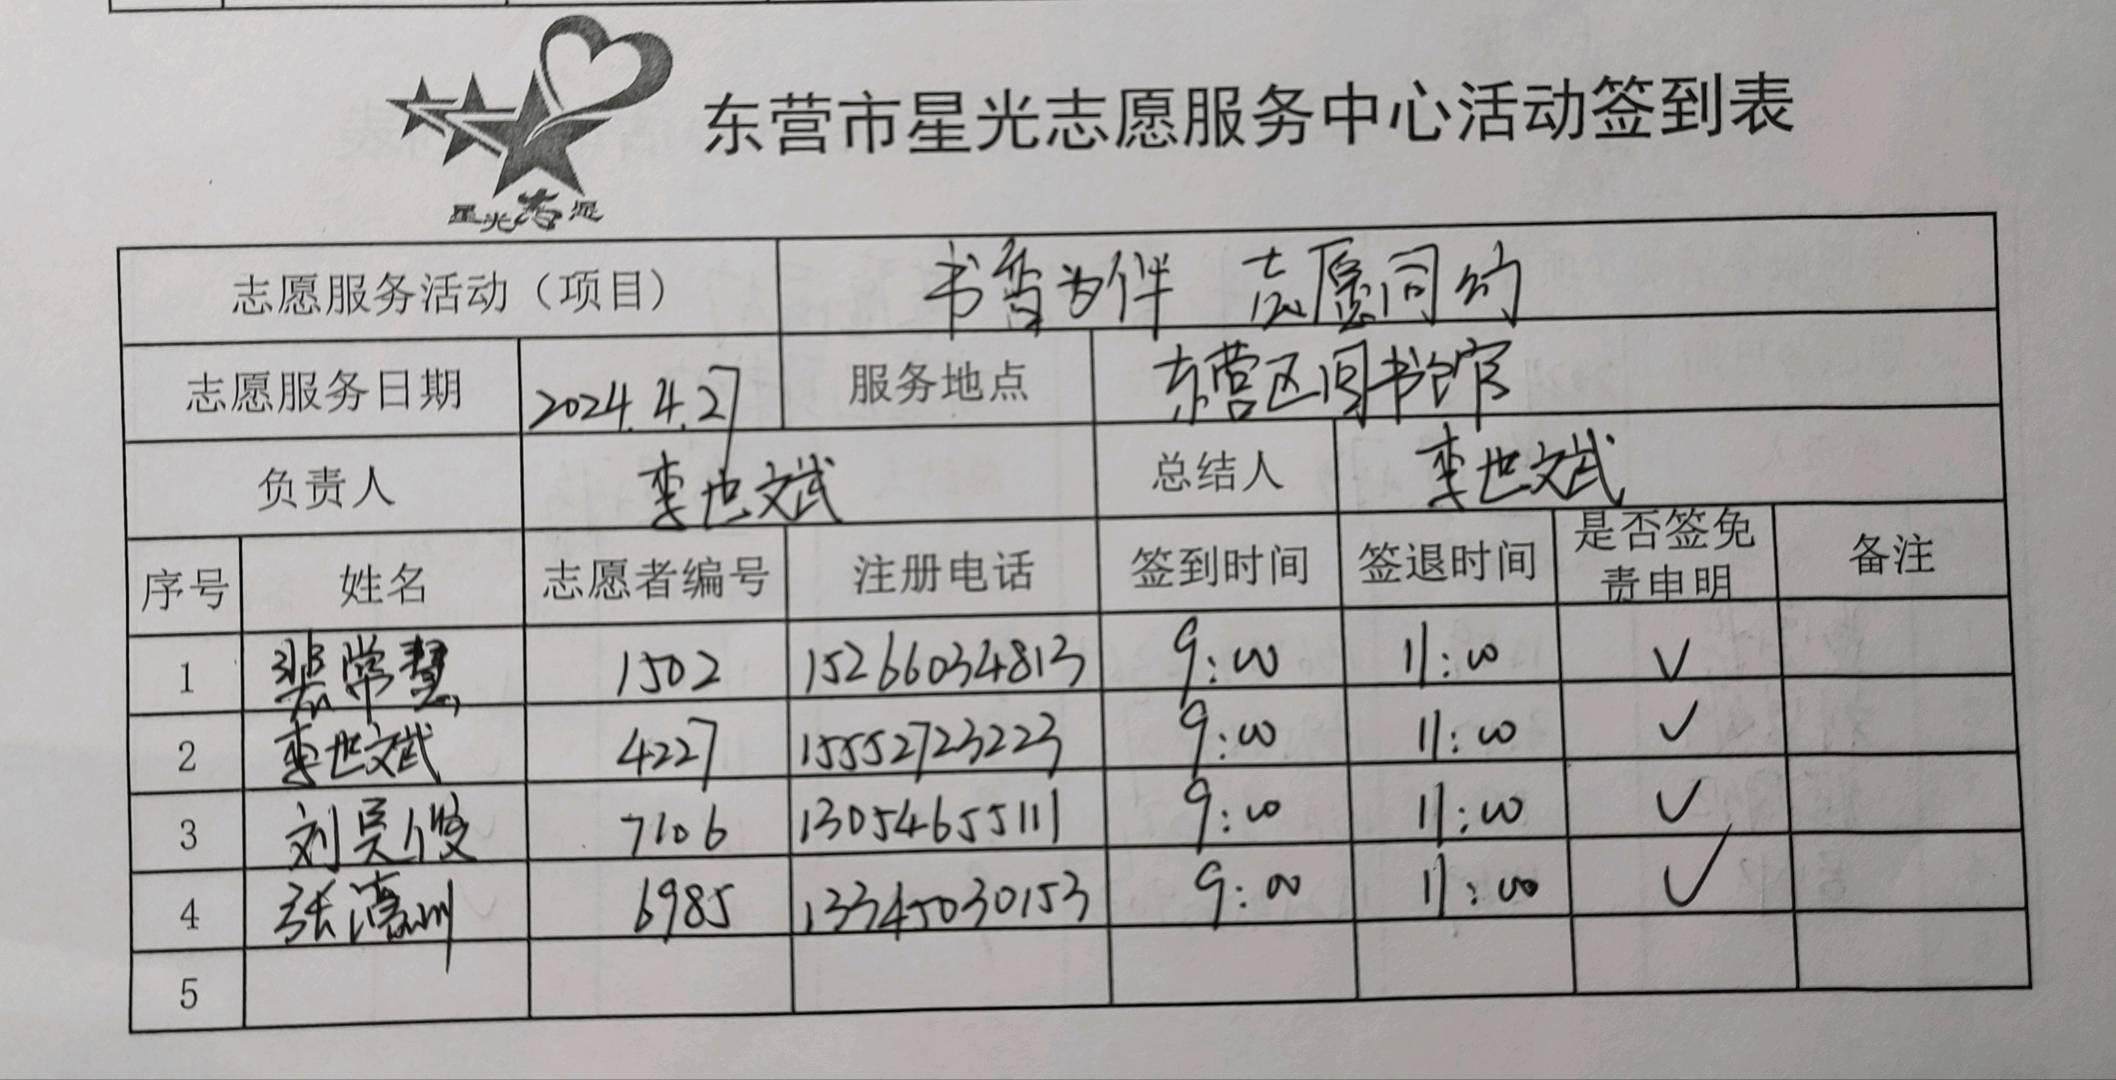 东营市星光志愿服务中心活动签到表
星光志愿
志愿服务活动（项目） 书香为伴 志愿同行
志愿服务日期 2024.4.27 服务地点 东营区图书馆
负责人 李世文斌 总结人 李世文斌
序号 姓名 志愿者编号 注册电话 签到时间 签退时间 是否签免责申明 备注
1 裴常慧 1502 15266034813 9:00 11:00 √
2 李世文斌 4227 15552723223 9:00 11:00 √
3 刘昊俊 7106 13054655111 9:00 11:00 √
4 张 6985 13345030153 9:00 11:00 √
5